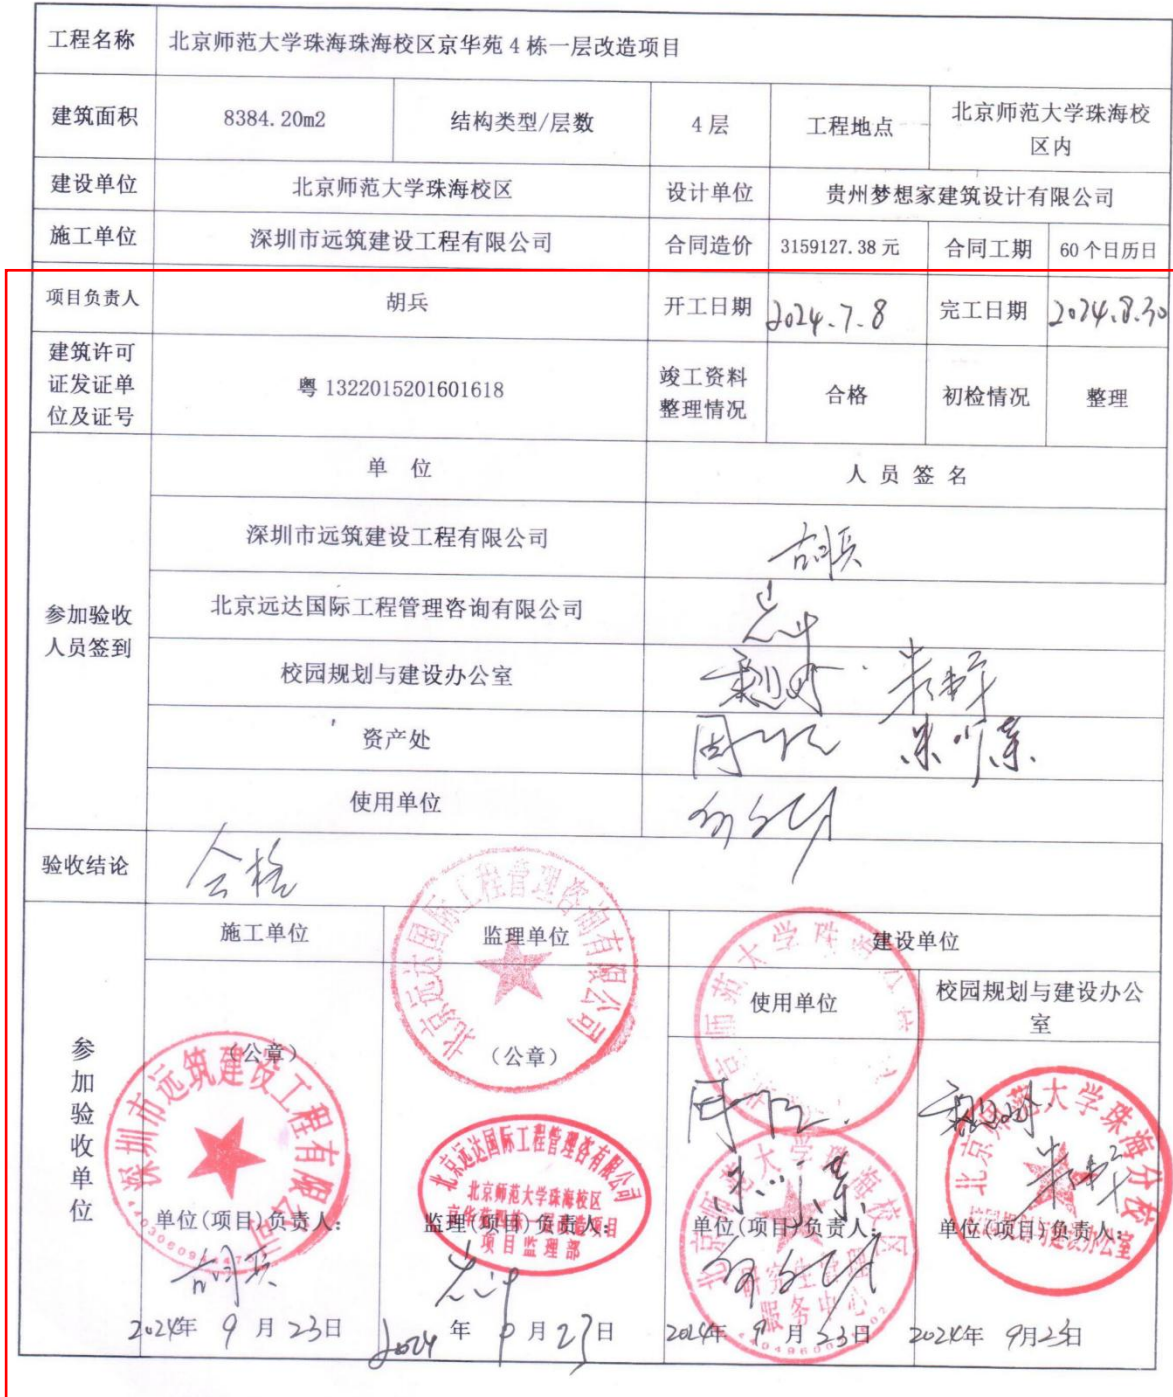 工程名称 北京师范大学珠海珠海校区京华苑 4 栋一层改造项目
建筑面积 8384.20m2 结构类型/层数 4 层 工程地点 北京师范大学珠海校
区内
建设单位 北京师范大学珠海校区 设计单位 贵州梦想家建筑设计有限公司
施工单位 深圳市远筑建设工程有限公司 合同造价 3159127.38 元 合同工期 60 个日历日
项目负责人 胡兵 开工日期 2024.7.8 完工日期 2024.8.30
建筑许可
证发证单
位及证号
粤 1322015201601618
竣工资料
整理情况
合格 初检情况 整理
参加验收
人员签到
单 位 人 员 签 名
深圳市远筑建设工程有限公司 胡兵
北京远达国际工程管理咨询有限公司
校园规划与建设办公室
资产处
使用单位
验收结论 合格
参加验收单位
施工单位 监理单位 建设单位
使用单位 校园规划与建设办公
室
(公章) (公章)
深圳市远筑建设工程有限公司
北京远达国际工程管理咨询有限公司
北京远达国际工程管理咨有限公司
北京师范大学珠海校区
项目监理部
北京师范大学珠海校区
研究生管理
服务中心
北京师范大学珠海分校
单位(项目)负责人: 监理(项目)负责人: 单位(项目)负责人: 单位(项目)负责人:
胡兵
2024年 9 月 23日 2024 年 9 月 23 日 2024年 9 月 23日 2024年 9月23日